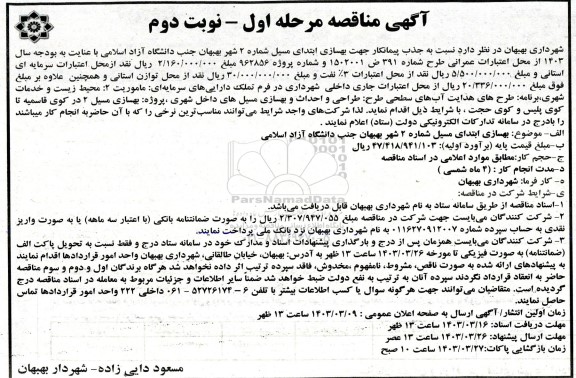 آگهی مناقصه مرحله اول – نوبت دوم
شهرداری بهبهان در نظر دارد نسبت به جذب پیمانکار جهت بهسازی ابتدای مسیل شماره ۲ شهر بهبهان جنب دانشگاه آزاد اسلامی با عنایت به بودجه سال
۱۴۰۳ از محل اعتبارات عمرانی طرح شماره ۳۹۱ ض ۱۵۰۲۰۰۱ و شماره پروژه ۹۶۲۸۵۶ مبلغ ۲/۱۶۰/۰۰۰/۰۰۰ ریال نقد ازمحل اعتبارات سرمایه ای
استانی و مبلغ ۵/۵۰۰/۰۰۰/۰۰۰ ریال نقد از محل اعتبارات ۳٪ نفت و مبلغ ۳۰/۰۰۰/۰۰۰/۰۰۰ ریال نقد از محل توازن استانی و همچنین علاوه بر مبلغ
فوق مبلغ ۲۰/۳۳۶/۰۰۰/۰۰۰ ریال از محل اعتبارات جاری داخلی شهرداری در فرم تملکت دارایی‌های سرمایه‌ای: ماموریت ۲: محیط زیست و خدمات
شهری،برنامه: طرح های هدایت آب‌های سطحی طرح: طراحی و احداث و بهسازی مسیل های داخل شهری ،پروژه: بهسازی مسیل ۲ در کوی قاسمیه تا
کوی پلیس و کوی حجت ، با شرایط ذیل اقدام نماید. لذا شرکت‌های واجد شرایط می‌توانند مناسب‌ترین نرخی را که با آن حاضربه انجام کار میباشند
را بادرج در سامانه تدارکات الکترونیکی دولت (ستاد) اعلام نمایند .
الف – موضوع: بهسازی ابتدای مسیل شماره ۲ شهر بهبهان جنب دانشگاه آزاد اسلامی
ب–مبلغ قیمت پایه (برآورد اولیه): ۴۷/۴۱۸/۹۴۱/۱۰۳ ریال
ج–حجم کار:مطابق موارد اعلامی در اسناد مناقصه
د–مدت انجام کار : (۲ ماه شمسی )
ه– کار فرما: شهرداری بهبهان
ی–شرایط شرکت در مناقصه:
۱–اسناد مناقصه از طریق سامانه ستاد به نام شهرداری بهبهان قابل دریافت می‌باشد.
۲– شرکت کنندگان می‌بایست جهت شرکت در مناقصه مبلغ ۲/۳۰۷/۹۴۷/۰۵۵ ریال را به صورت ضمانتنامه بانکی (با اعتبار سه ماهه) یا به صورت واریز
نقدی به حساب سپرده شماره ۰۱۱۶۲۷۰۹۱۲۰۰۷ به نام شهرداری بهبهان نزد بانک ملی پرداخت نمایند.
۳– شرکت کنندگان می‌بایست همزمان پس از درج و بارگذاری پیشنهادات اسناد و مدارک خود در سامانه ستاد درج و فقط نسبت به تحویل پاکت الف
(ضمانتنامه) به صورت فیزیکی تا مورخه ۱۴۰۳/۰۳/۲۶ ساعت ۱۳ ظهر به آدرس: بهبهان، خیابان طالقانی، شهرداری بهبهان واحد امور قراردادها اقدام نمایند
به پیشنهادهای ارائه شده به صورت ناقص، مشروط، نامفهوم ،مخدوش، فاقد سپرده ترتیب اثر داده نخواهد شد هرگاه برندگان اول و دوم و سوم مناقصه
حاضر به انعقاد قرارداد نگردند سپرده آنان به ترتیب به نفع دولت ضبط خواهد شد ضمناً سایر اطلاعات و جزئیات مربوط به معامله در اسناد مناقصه درج
گردیده است. متقاضیان می‌توانند جهت هرگونه سوال یا کسب اطلاعات بیشتر با تلفن ۶ – ۵۲۷۲۶۱۷۴ – ۰۶۱ داخلی ۲۲۲ واحد امور قراردادها تماس
حاصل نمایند.
زمان اولین انتشار/ آگهی ارسال به صفحه اعلان عمومی : ۱۴۰۳/۰۳/۰۹ ساعت ۱۳ ظهر
مهلت دریافت اسناد: ۱۴۰۳/۰۳/۱۶ ساعت ۱۳ ظهر
مهلت ارسال پیشنهاد: ۱۴۰۳/۰۳/۲۶ ساعت ۱۳ عصر
زمان بازگشایی پاکات:۱۴۰۳/۰۳/۲۷ ساعت ۱۰ صبح
مسعود دایی زاده– شهردار بهبهان